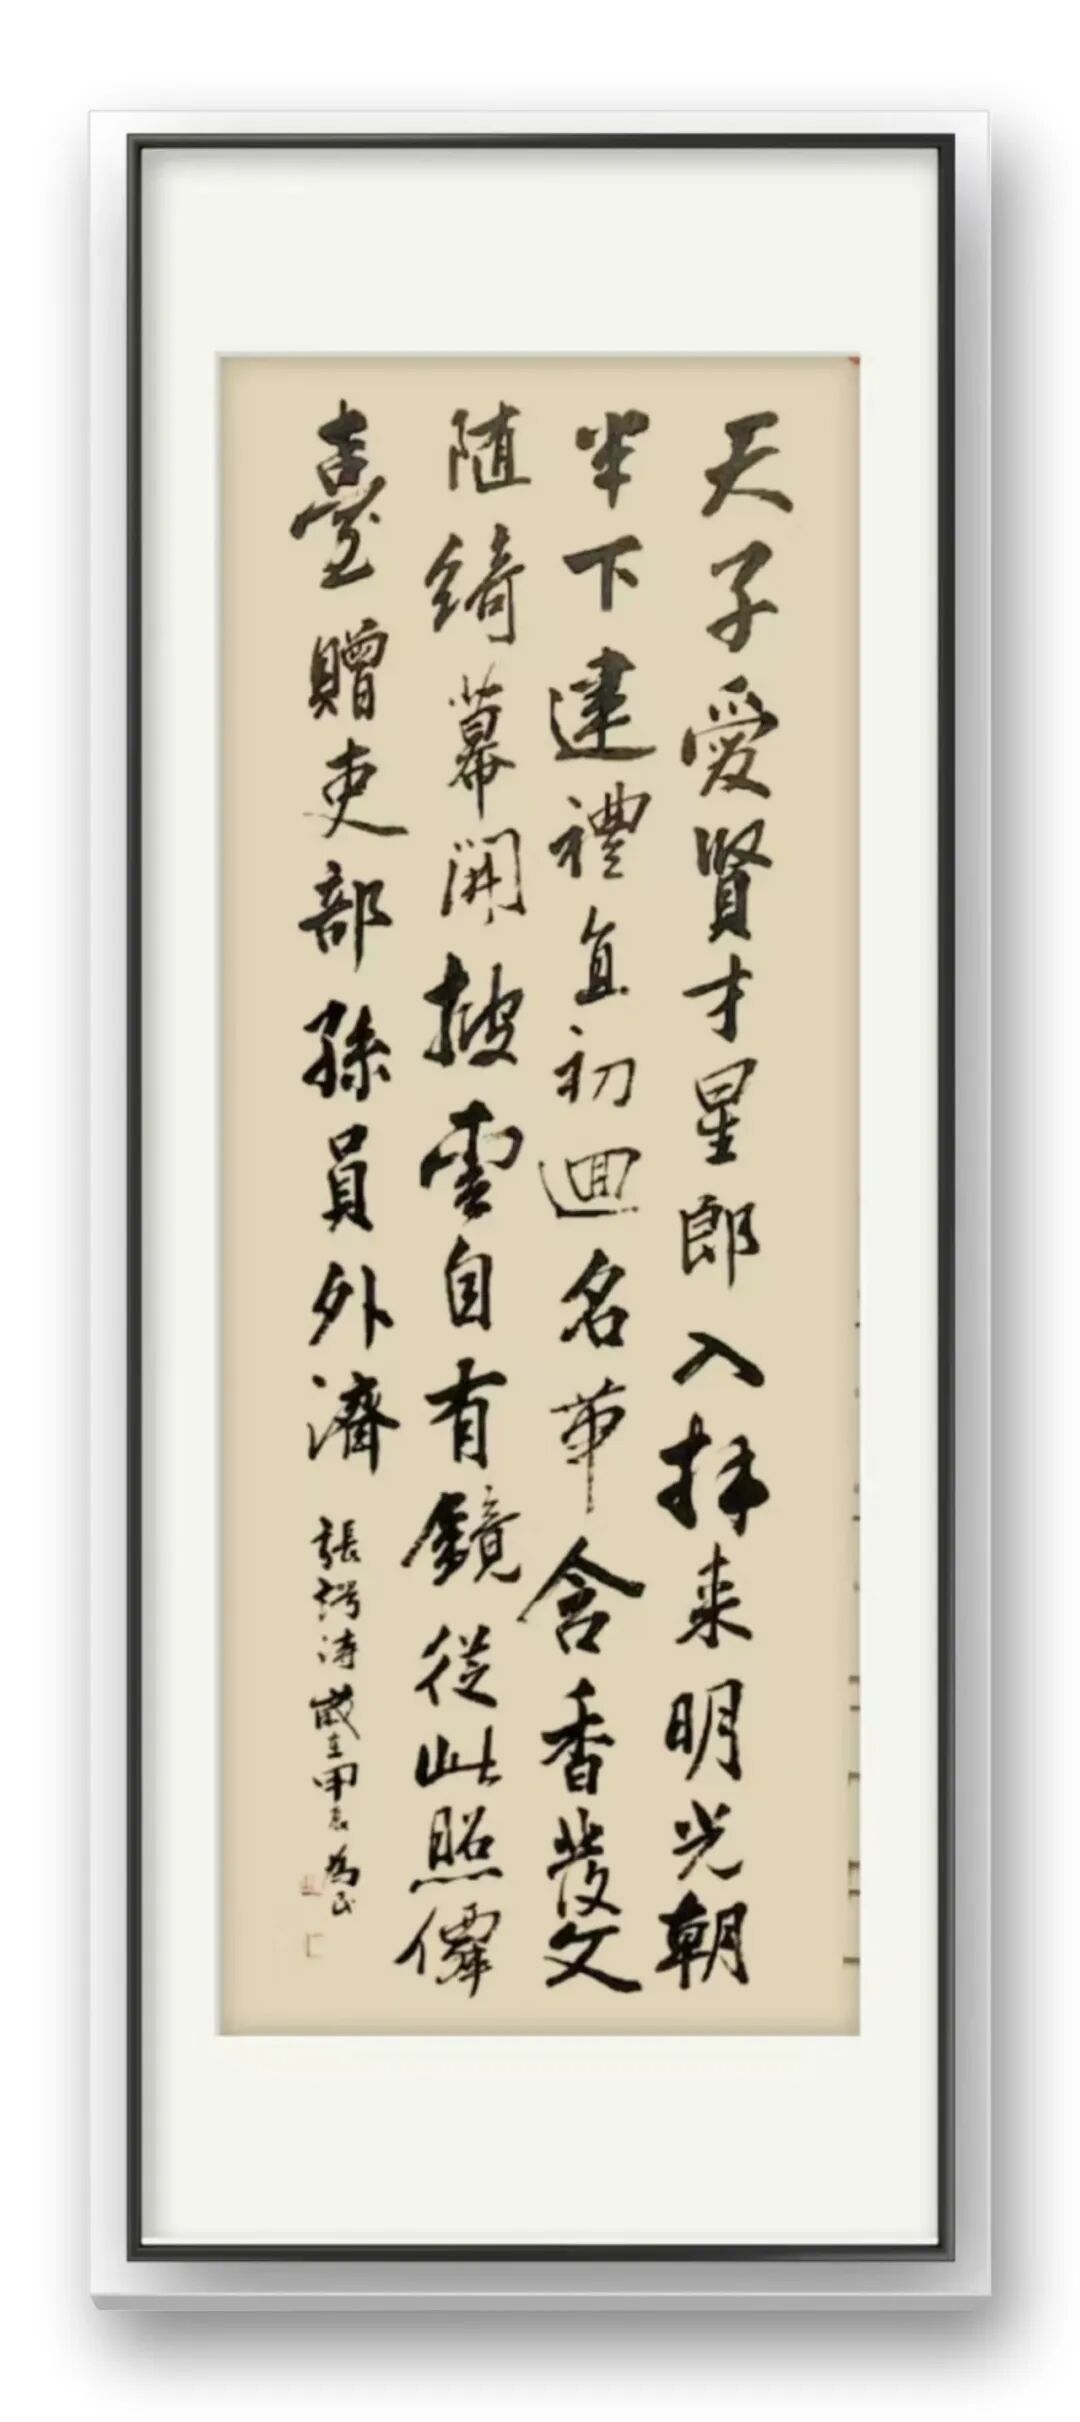 天子愛賢才星郎入拜来明光朝
半下建禮直初迴名草含香發文
随綺幕開披雲自有鏡從此照僊
臺贈吏部孫員外濟
張謂诗歲在甲辰為民